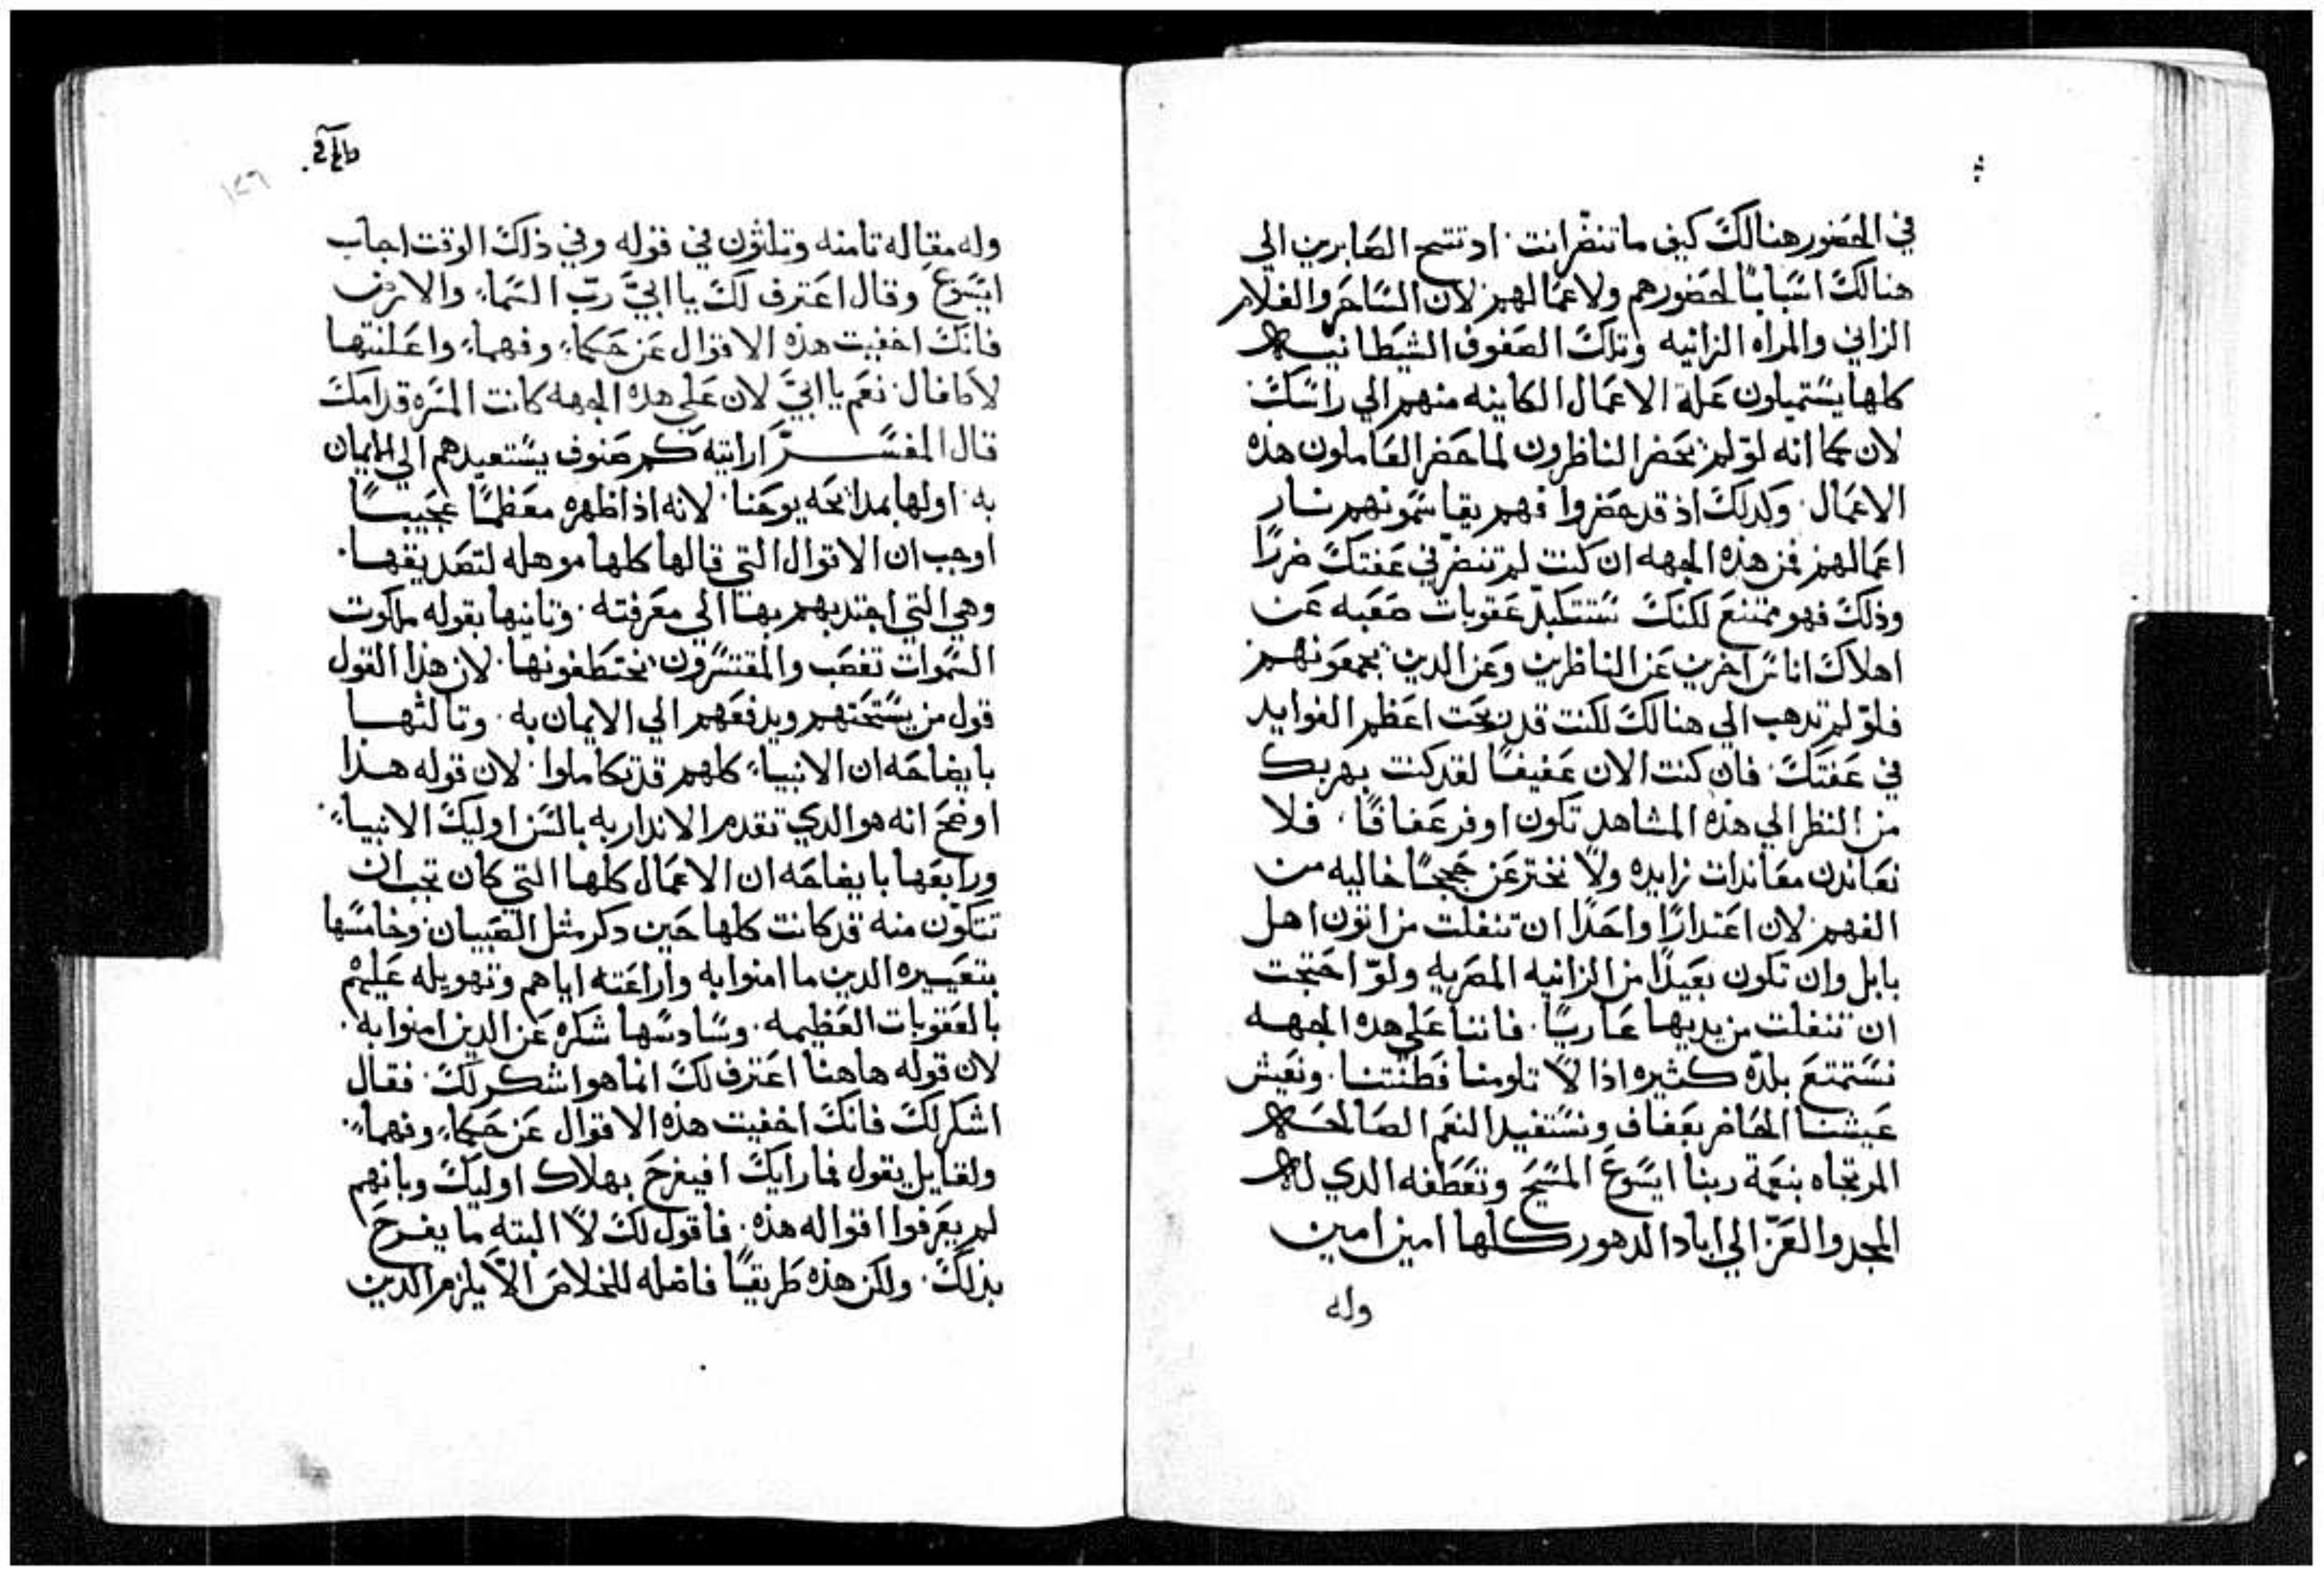 في الحضور هنالك كيف ما تنضر انت ادا تتسح الصابرين الي
هنالك اسبابًا لحضورهم ولاعمالهم لان الساحر والغلام
الزاني والمراه الزانيه وتلك الصفوف الشيطانيه
كلها يستميلون علة الاعمال الكاينه منهم الي راسك
لان كما انه لو لم يحضر الناظرون لما حضر العاملون هذه
الاعمال وكدلك اذ قد حضروا فهم يقاسمونهم نار
اعمالهم فمن هذه الجهه ان كنت لم تنضر في عفتك ضررًا
وذلك فهو ممتنع لكنك ستتكبد عقوبات صعبه عن
اهلاك اناس اخرين عن الناظرين وعن الدين يجمعونهم
فلو لم تدهب الي هنالك لكنت قد ربحت اعظم الفوايد
في عفتك فان كنت الان عفيفًا لقد كنت بهربك
من النظر الي هذه المشاهد تكون اوفر عفافًا فلا
نعاندن معاندات زايده ولا نخترعن حججًا خاليه من
الفهم لان اعتدارًا واحدًا ان تنفلت من اتون اهل
بابل وان تكون بعيدًا من الزانيه المصريه ولو احتجت
ان تنفلت من يديها عاريًا فاننا علي هده الجهه
نستمتع بلده كثيره اذا لا تلومنا فطنتنا ونعيش
عيشنا الحاضر بعفاف ونستفيد النعم الصالحه
المرتجاه بنعمة ربنا ايسوع المسيح وتعطفه الدي له
المجد والعز الي اباد الدهور كلها امين امين
وله
١٢٦
وله مقاله تامنه وتلثون في قوله وفي ذلك الوقت اجاب
ايسوع وقال اعترف لك يا ابي رب السماء والارض
فانك اخفيت هذه الاقوال عن حكماء وفهماء واعلنتها
لاطفال نعم يا ابي لان علي هده الجهه كانت المسره قدامك
قال المفسر ارايته كم صنوف يستعيدهم الي الايمان
به اولها بمدائحه يوحنا لانه اذ اظهره معظمًا عجيبًا
اوجب ان الاقوال التي قالها كلها موهله لتصديقها
وهي التي اجتدبهم بها الي معرفته وتانيها بقوله ملكوت
السموات تغصب والمقتسرون يختطفونها لان هذا القول
قول من يستحتهم ويدفعهم الي الايمان به وتالثها
بايضاحه ان الانبياء كلهم قد تكاملوا لان قوله هذا
اوضح انه هو الدي تقدم الاندار به بالسن اوليك الانبياء
ورابعها بايضاحه ان الاعمال كلها التي كان تجب ان
تتكون منه قد كانت كلها حين دكر مثل الصبيان وخامسها
بتعييره الدين ما امنوا به واراعته اياهم وتهويله عليهم
بالعقوبات العظيمه وسادسها شكره عن الدين امنوا به
لان قوله هاهنا اعترف لك انما هو اشكر لك فقال
اشكر لك فانك اخفيت هذه الاقوال عن حكماء وفهماء
ولقايل يقول فما رايك افيفرح بهلاك اوليك وبانهم
لم يعرفوا اقواله هذه فاقول لك لا البته ما يفرح
بذلك ولكن هذه طريقًا فاضله للخلاص الا يلزم الدين